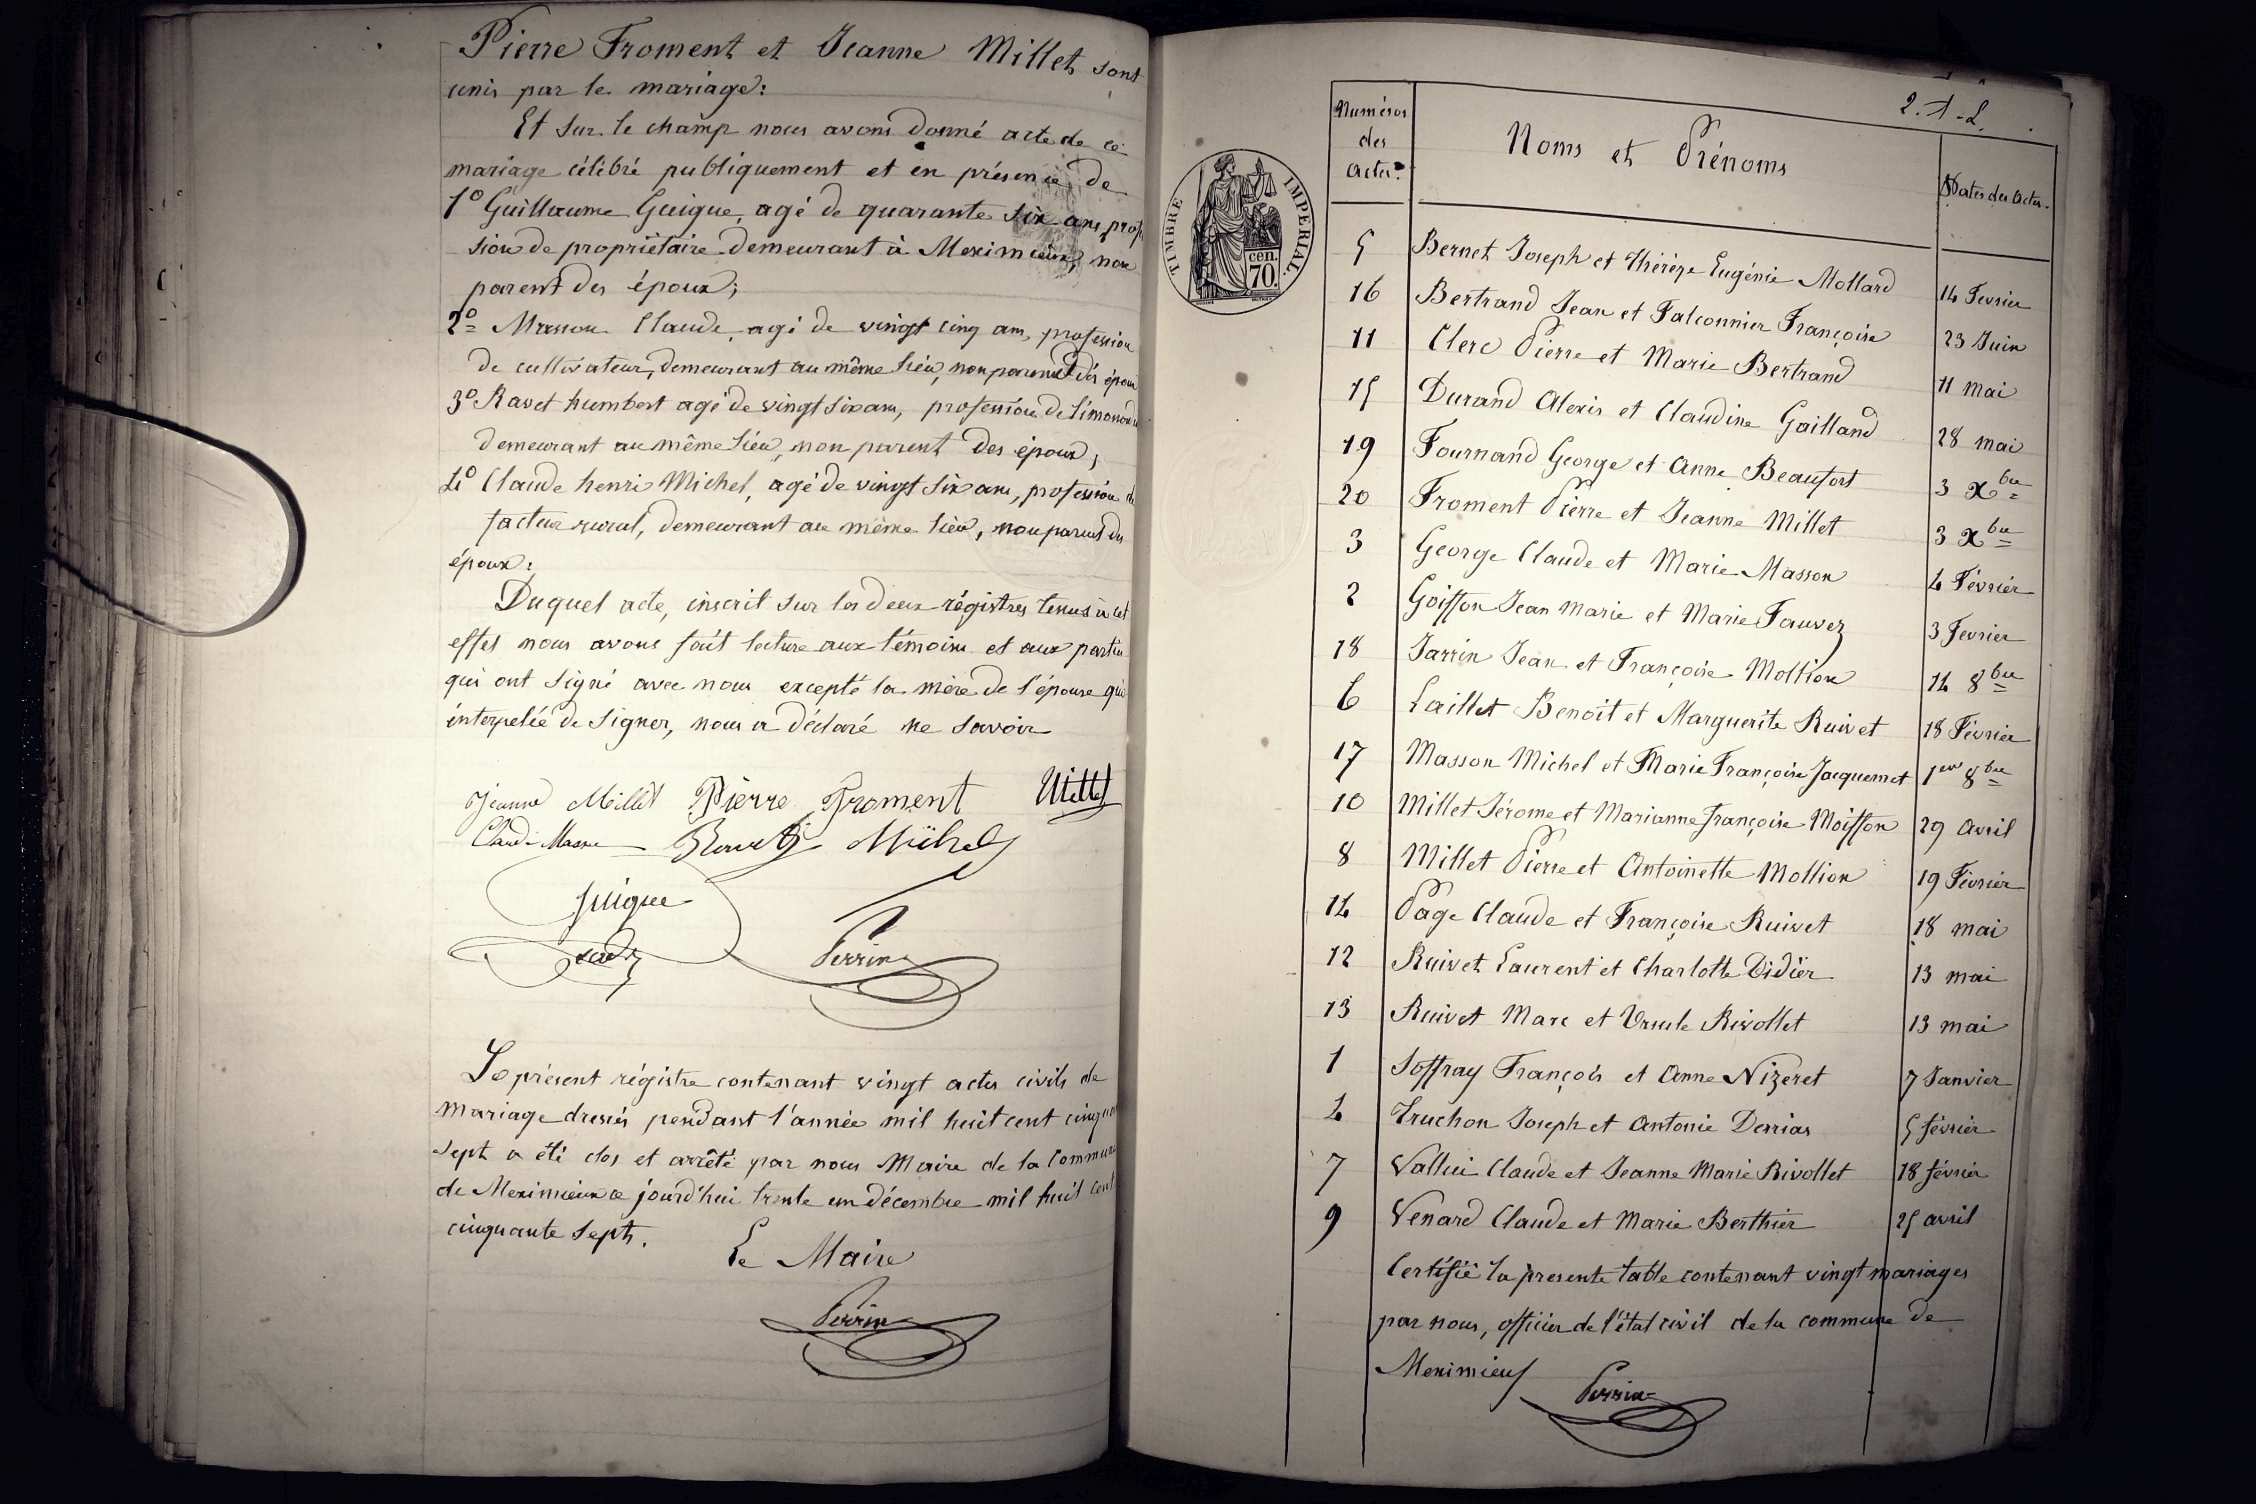 Pierre Froment et Jeanne Millet sont
unis par le mariage:
Et sur le champ nous avons donné acte de ce
mariage célébré publiquement et en présence de
1º Guillaume Guigue, agé de quarante six ans, prof
sion de propriétaire demeurant à Meximieux, non
parent des époux;
2º Masson Claude, agé de vingt cinq ans, profession
de cultivateur, demeurant au même lieu, non parent des époux
3º Ravet humbert agé de vingt six ans, profession de
demeurant au même lieu, non parent des époux,
4º Claude henri Michel, agé de vingt six ans, profession de
facteur rural, demeurant au même lieu, non parent des
époux:
Duquel acte, inscrit sur les deux régistres tenus à cet
effet nous avons fait lecture aux témoins et aux parties
qui ont signé avec nous excepté la mère de l'épouse qui
interpelée de signer, nous a déclaré ne savoir
Jeanne Millet Pierre Froment Millet
Claude Masson Ravet Michel
Guigue
Perrin
Le présent régistre contenant vingt actes civils de
mariage dressés pendant l'année mil huit cent cinquan
sept a été clos et arrêté par nous Maire de la Commune
de Meximieux ce jourd'hui trente un décembre mil huit cent
cinquante sept.
Le Maire
Perrin
2.
TIMBRE IMPERIAL.
70. cen.
Numéros des Actes. Noms et Prénoms Dates des Actes.
5 Bernet Joseph et Thérèze Eugénie Mollard 14 Fevrier
16 Bertrand Jean et Falconnier Françoise 23 Juin
11 Clerc Pierre et Marie Bertrand 11 mai
15 Durand Alexis et Claudine Gailland 28 mai
19 Fournand George et Anne Beaufort 3 Xbre
20 Froment Pierre et Jeanne Millet 3 Xbre
3 George Claude et Marie Masson 4 Février
2 Goiffon Jean Marie et Marie Fauvez 3 Fevrier
18 Jarrin Jean et Françoise Mollion 14 8bre
6 Laillet Benoit et Marguerite Ruivet 18 Février
17 Masson Michel et Marie Françoise Jacquemet 1er 8bre
10 Millet Jérome et Marianne Françoise Moiffon 29 Avril
8 Millet Pierre et Antoinette Mollion 19 Février
14 Page Claude et Françoise Ruivet 18 mai
12 Ruivet Laurent et Charlotte Didier 13 mai
13 Ruivet Marc et Ursule Rivollet 13 mai
1 Soffray François et Anne Nizeret 7 Janvier
4 Truchon Joseph et Antonie Derrias 5 février
7 Vallui Claude et Jeanne Marie Rivollet 18 février
9 Venard Claude et Marie Berthier 25 avril
Certifié la presente table contenant vingt mariages
par nous, officier de l'état civil de la commune de
Meximieux
Perrin